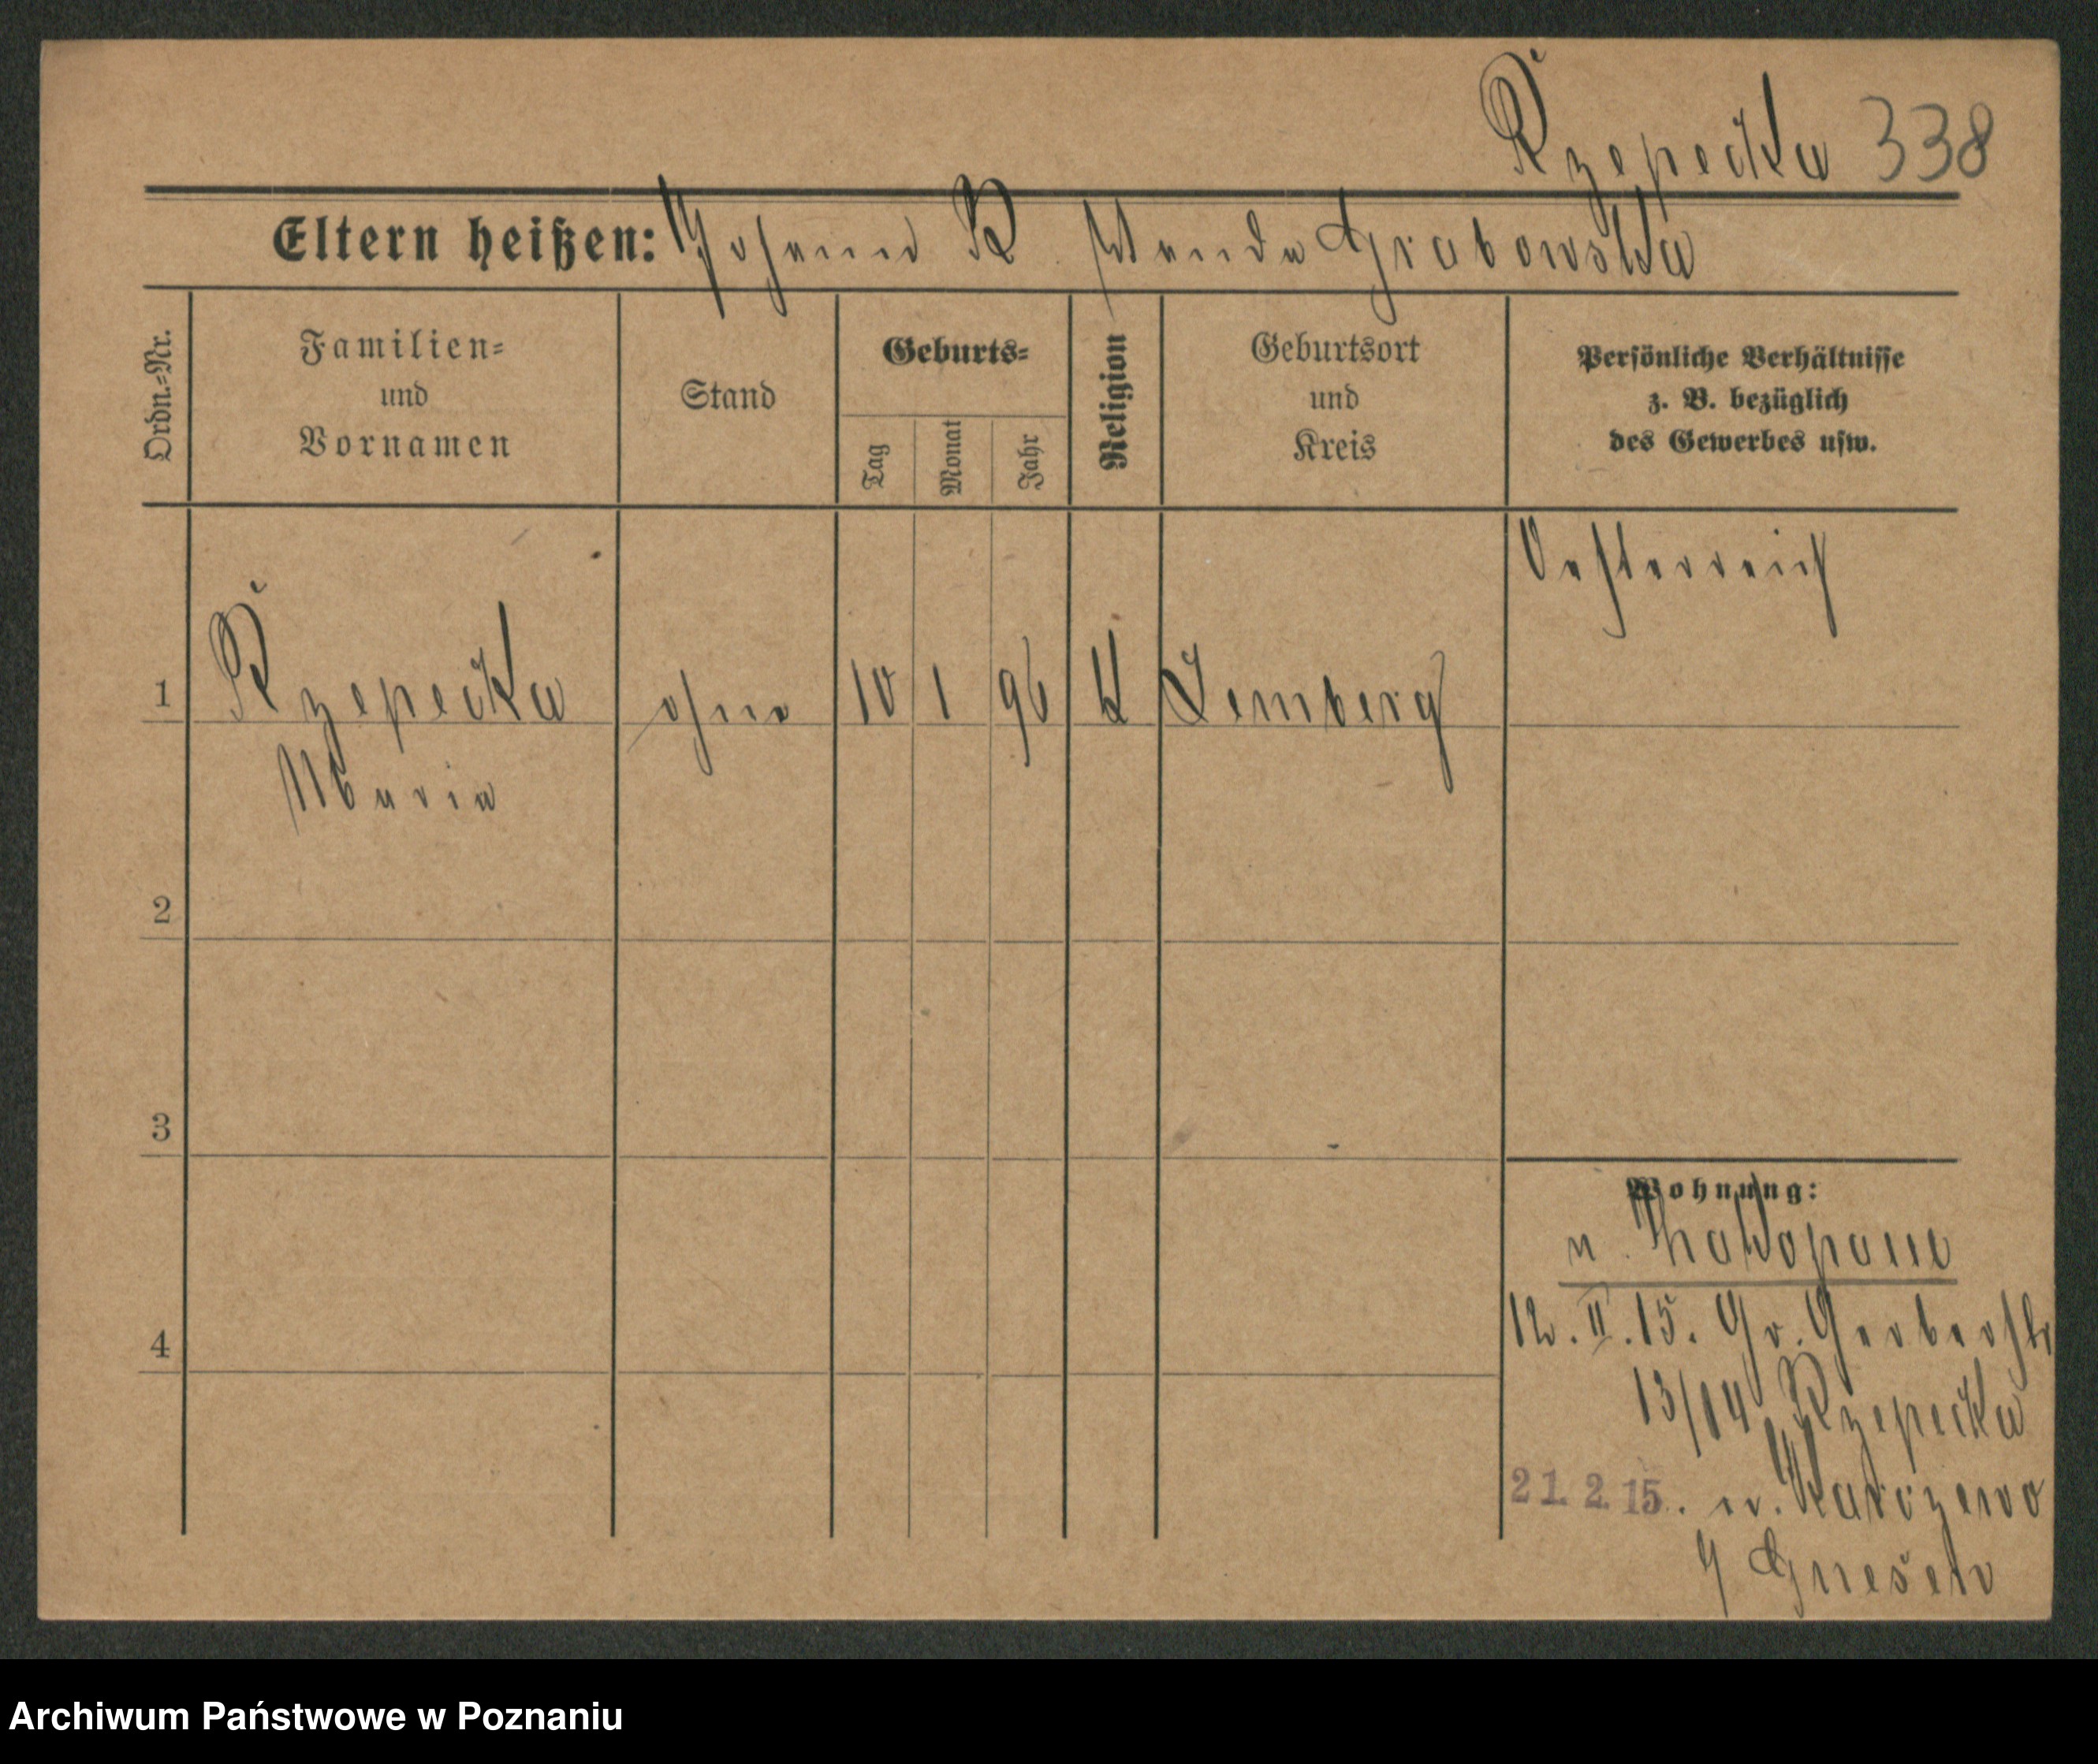 Rzepecka 338
Eltern heißen: Johann R. Wanda Grabowska
Ordn.=Nr.
Familien=
und
Vornamen
Stand
Geburts=
Tag
Monat
Jahr
Religion
Geburtsort
und
Kreis
Persönliche Verhältnisse
z. B. bezüglich
des Gewerbes usw.
Oesterreich
1 Rzepecka ohne 10 1 96 k Lemberg
Maria
2
3
4
Wohnung:
12. II. 15. Gr. Gerberstr
13/14 Rzepecka
21. 2. 15. n. Karczewo
Gnesen
Archiwum Państwowe w Poznaniu